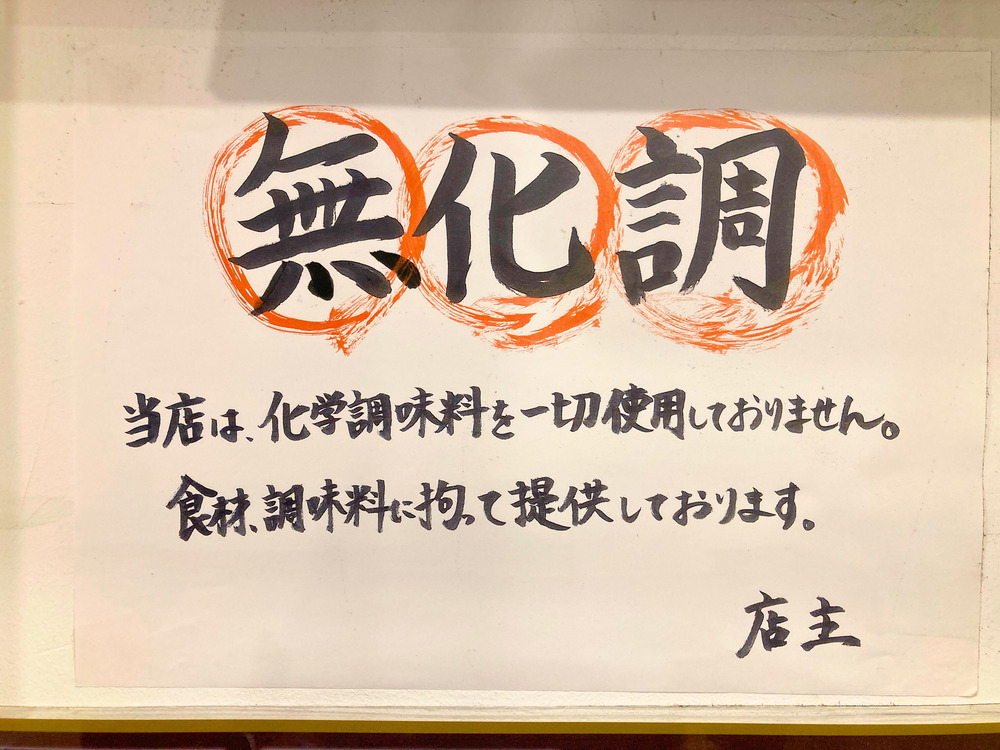 無化調
当店は、化学調味料を一切使用しておりません。
食材、調味料に拘って提供しております。
店主